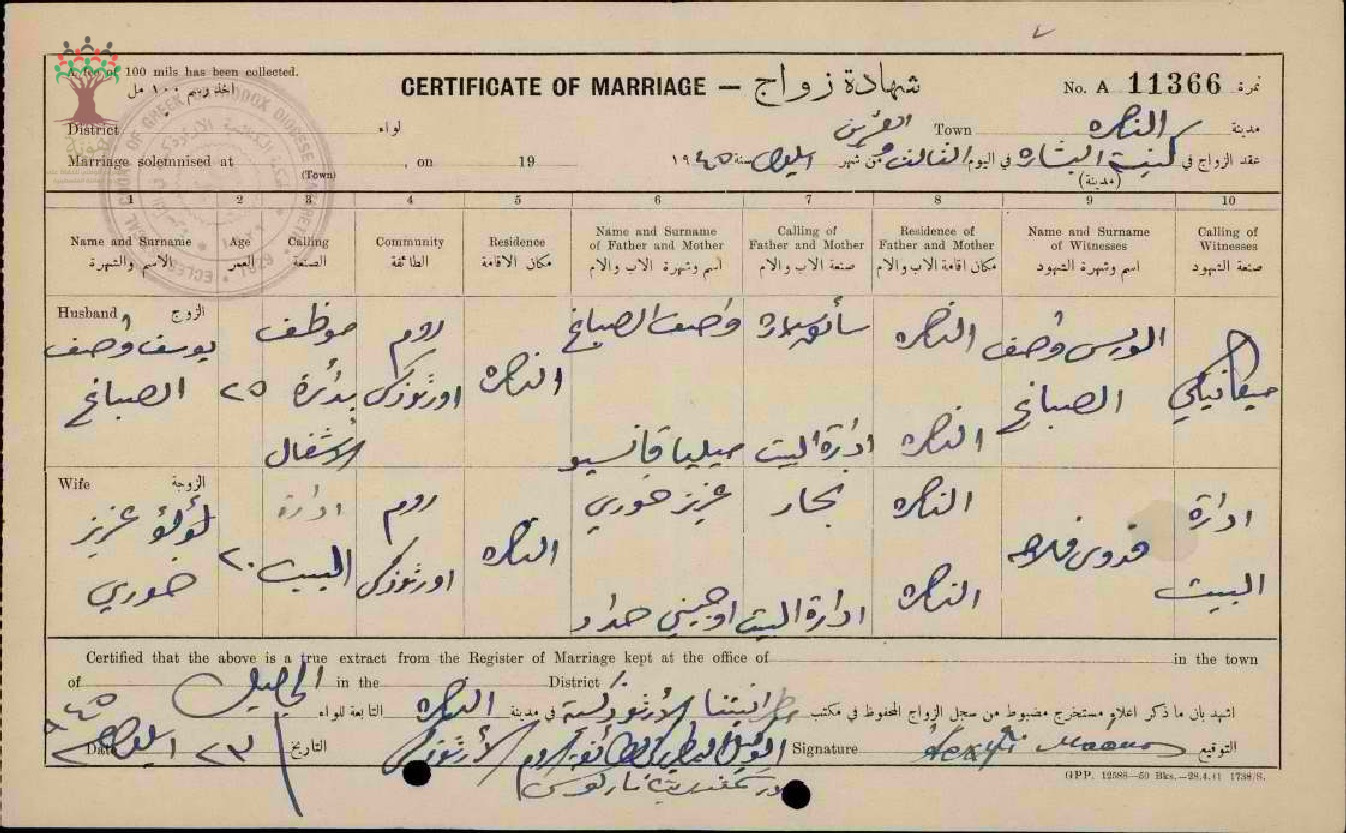 A fee of 100 mils has been collected.
اخذ رسم ١٠٠ مل
CERTIFICATE OF MARRIAGE — شهادة زواج
No. A 11366 نمرة
District لواء
Town الناصره مدينة
Marriage solemnised at , on 19
(Town)
عقد الزواج في كنيسة البشاره في اليوم الثالث والعشرين من شهر ايلول سنة ١٩٤٥
(مدينة)
1 2 3 4 5 6 7 8 9 10
Name and Surname
الاسم والشهرة
Age
العمر
Calling
الصنعة
Community
الطائفة
Residence
مكان الاقامة
Name and Surname
of Father and Mother
اسم وشهرة الاب والام
Calling of
Father and Mother
صنعة الاب والام
Residence of
Father and Mother
مكان اقامة الاب والام
Name and Surname
of Witnesses
اسم وشهرة الشهود
Calling of
Witnesses
صنعة الشهود
Husband الزوج
يوسف وصف
الصباغ
٢٥
موظف
بدائرة
الأشغال
روم
اورثوذكس
الناصره
وصف الصباغ
ميليا
الناصره
ادارة البيت
الناصره
وصف
الصباغ
ميكانيكي
Wife الزوجة
لؤلؤ عزيز
خوري
٢٠
ادارة
البيت
روم
اورثوذكس
الناصره
عزيز خوري
اوجيني حداد
نجار
ادارة البيت
الناصره
الناصره
ادارة
البيت
Certified that the above is a true extract from the Register of Marriage kept at the office of in the town
of in the District
اشهد بان ما ذكر اعلاه مستخرج مضبوط من سجل الزواج المحفوظ في مكتب الأرثوذكسية في مدينة الناصره التابعة للواء الجليل
Date ٢٣ ايلول ٩٤٥ التاريخ
Signature التوقيع
GPP. 12588—50 Bks.—28.4.41 1738/S.